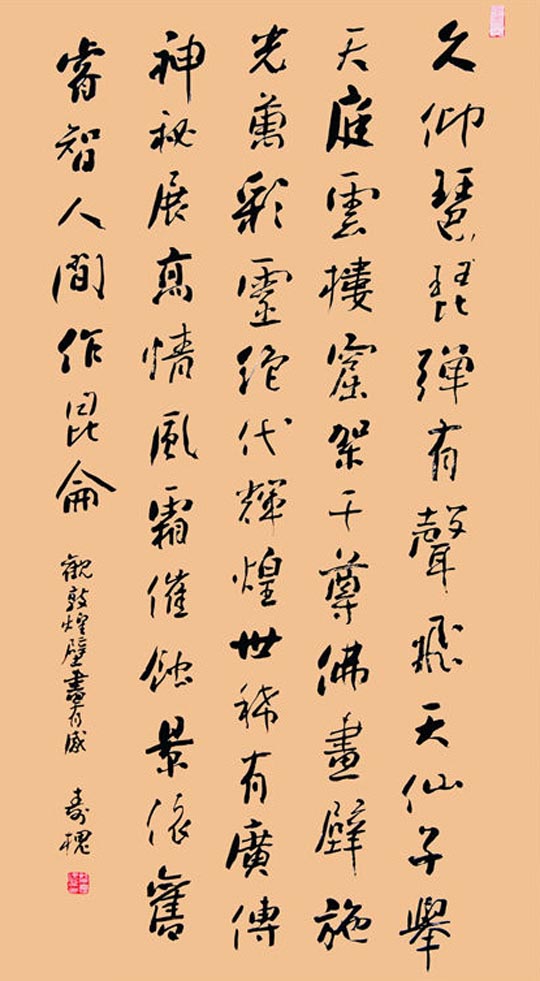 久仰琵琶弹有聲飛天仙子舉
天庭雲樓窟架千尊佛畫壁施
光萬彩靈絶代輝煌世稀有廣傳
神秘展高情風霜催蝕景依舊
睿智人間作昆侖
觀敦煌壁畫有感
壽槐